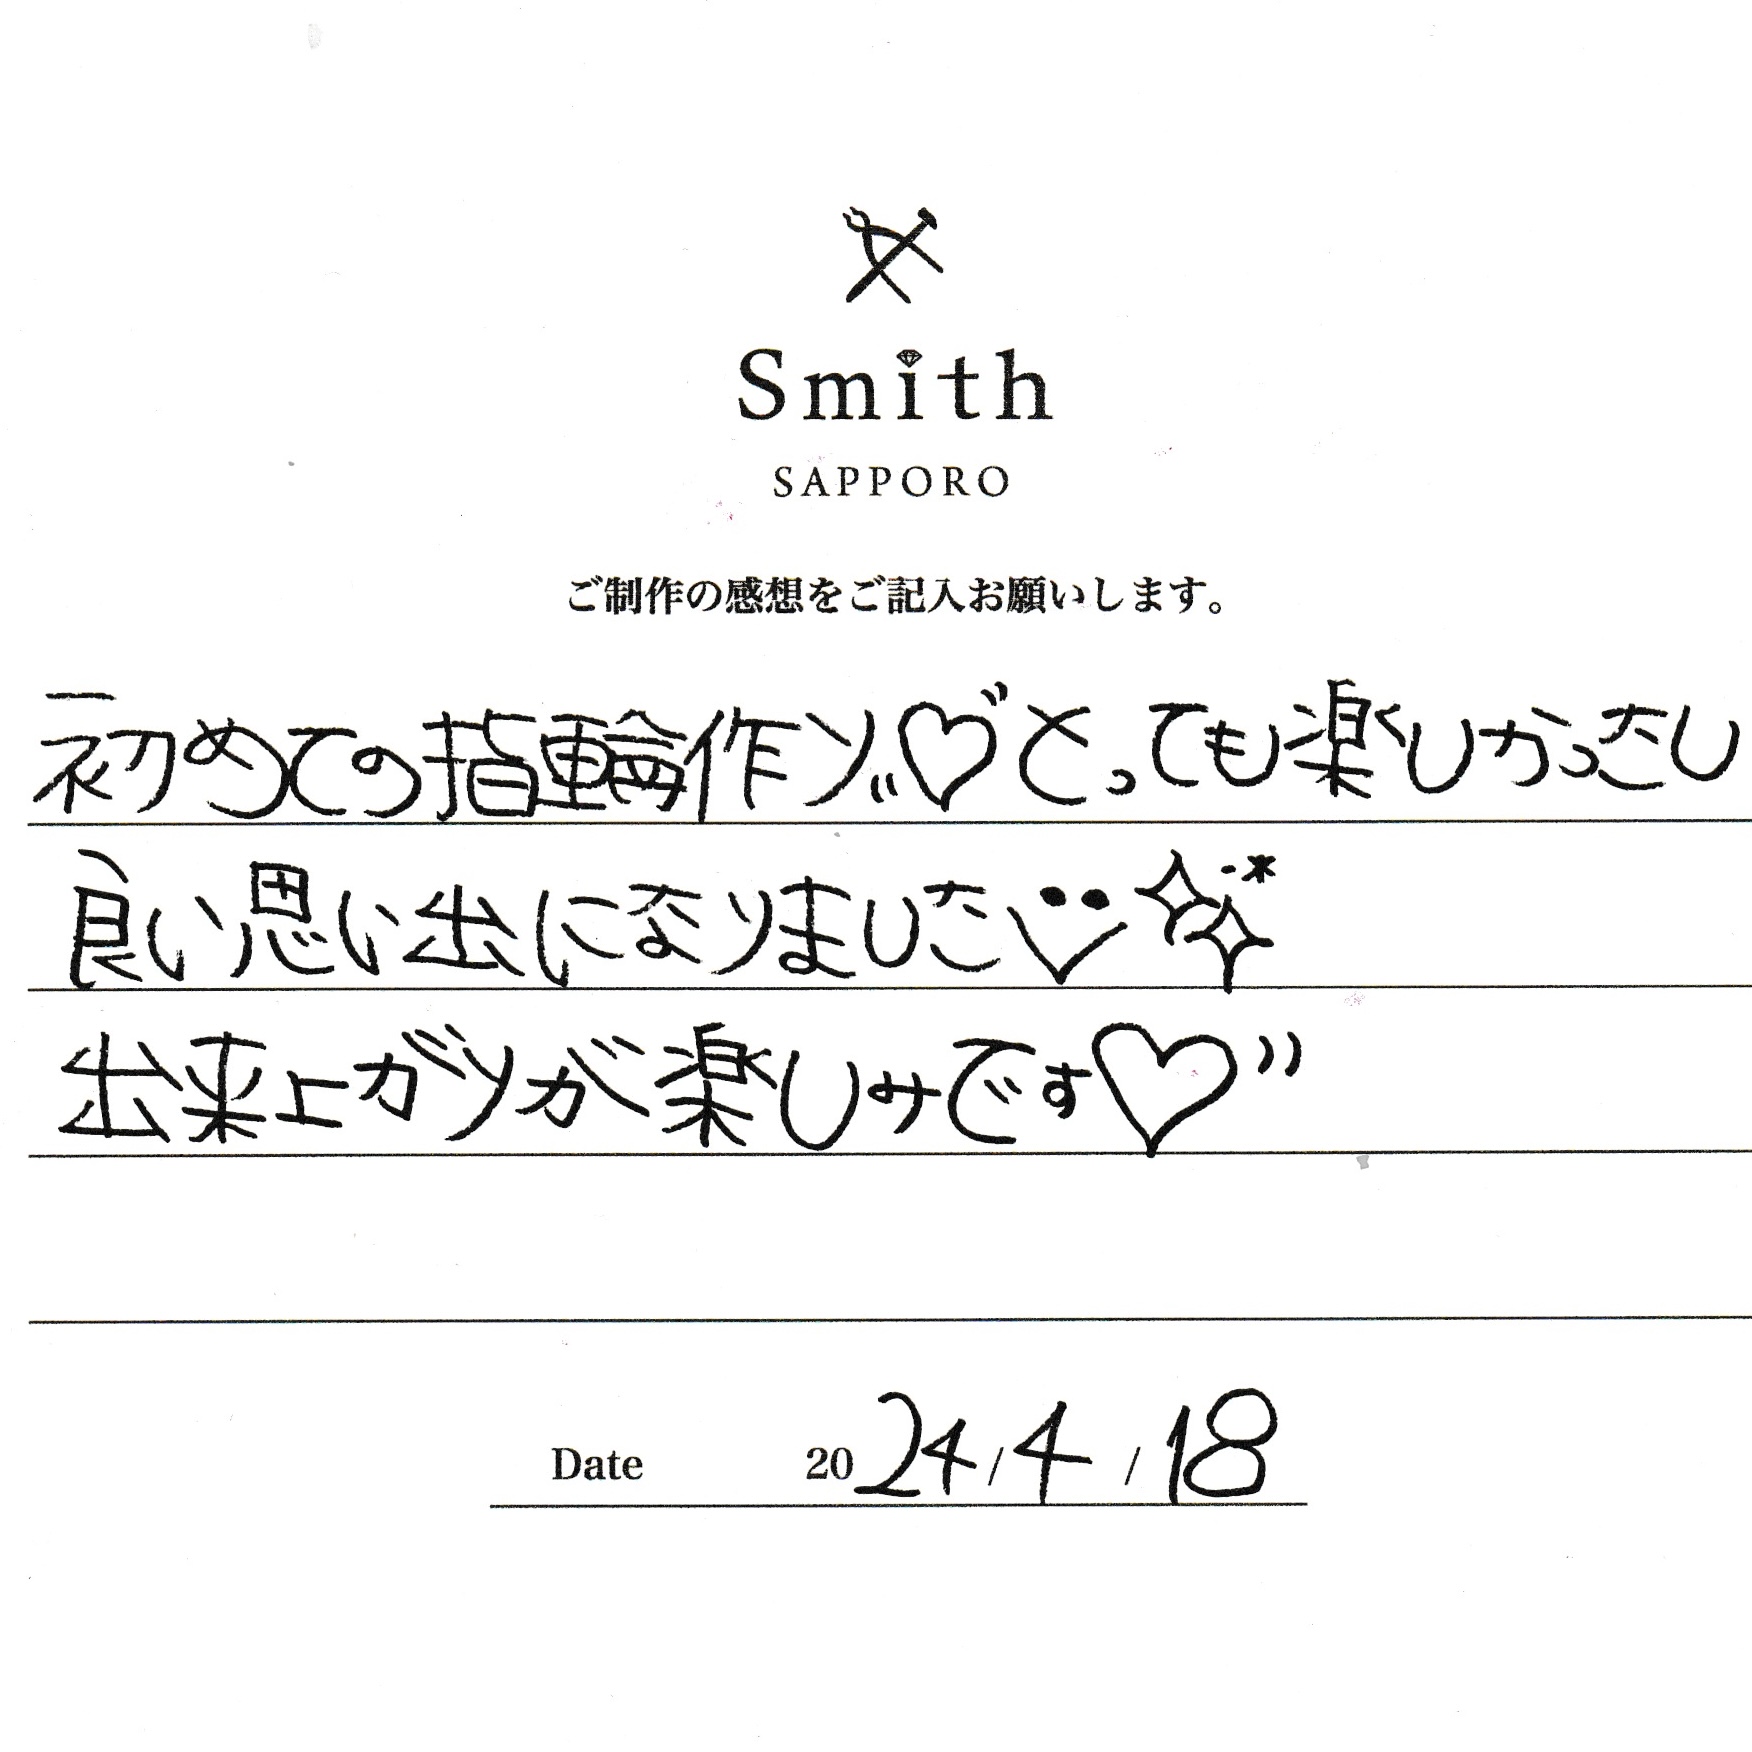 Smith
SAPPORO
ご制作の感想をご記入お願いします。
初めての指輪作り♡とっても楽しかったし
良い思い出になりました
出来上がりが楽しみです♡
Date 2024/4/18